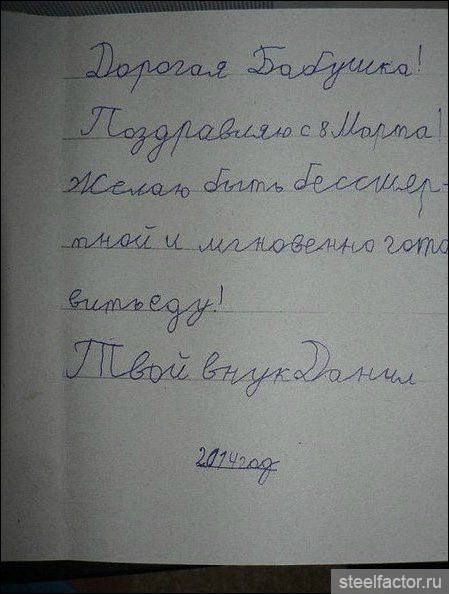 Дорогая Бабушка!
Поздравляю с 8 Марта!
Желаю быть бессмер-
тной и мгновенно гото
витьеду!
Твой внук Данил
2014 год
steelfactor.ru